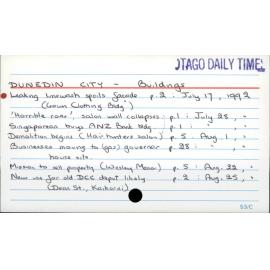 OTAGO DAILY TIMES
DUNEDIN CITY - Buildings
Leaking limewash spoils facade p.2 : July 17, 1992
(Crown Clothing Bdg.)
'Horrible roar', salon wall collapses : p.1 : July 28, "
Singaporean buys ANZ Bank bdg. p.1 : " "
Demolition begins (Hair hunters salon) p.5 : Aug. 1, "
Businesses moving to (gas) governor p.28 : " "
house site.
Mission to sell property (Wesley Manor) p.5 : Aug. 22, "
New use for old DCC depot likely p.2 : Aug. 25, "
(Dean St., Kaikorai)